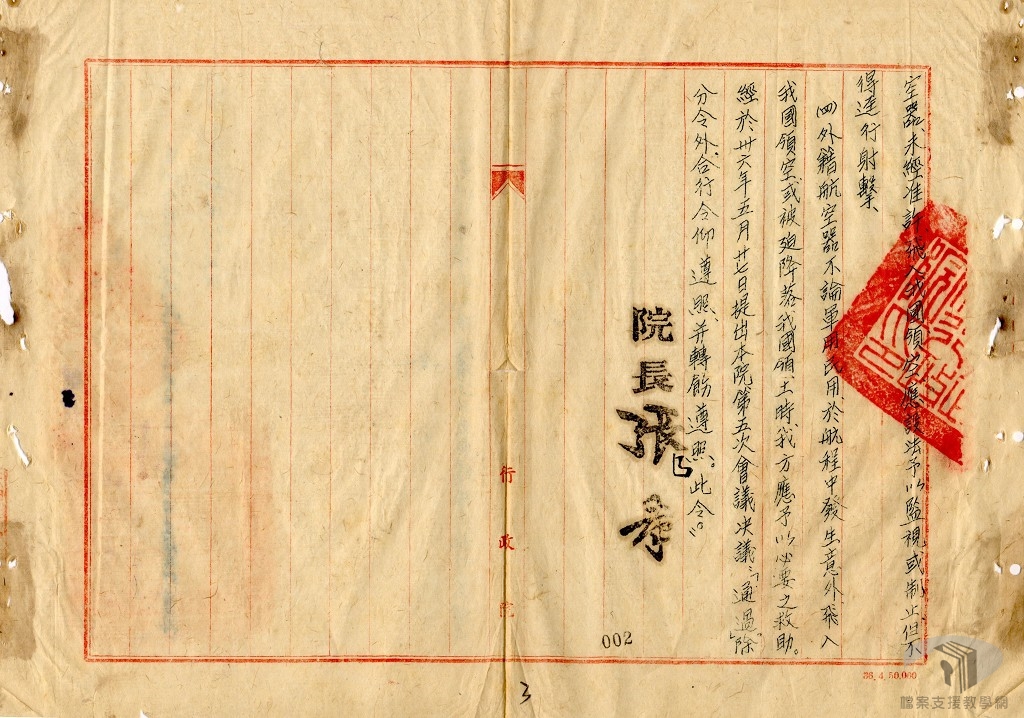 空器、未經准許飛入我國領空、應設法予以監視或制止、但不
得逕行射擊、
(四)外籍航空器不論軍用民用、於航程中發生意外、飛入
我國領空、或被迫降落我國領土時、我方應予以必要之救助。
經於卅六年五月廿七日提出本院第五次會議決議：「通過」除
分令外、合行令仰遵照、并轉飭遵照。此令。
院長張羣
行政院
002
3
36.4.50,000
檔案支援教學網